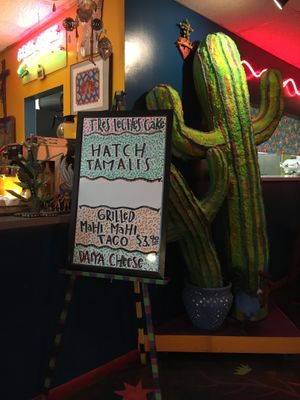 TRES LECHES CAKE
HATCH
TAMALES
GRILLED
MAHI MAHI
TACO $3.90
DAIYA CHEESE